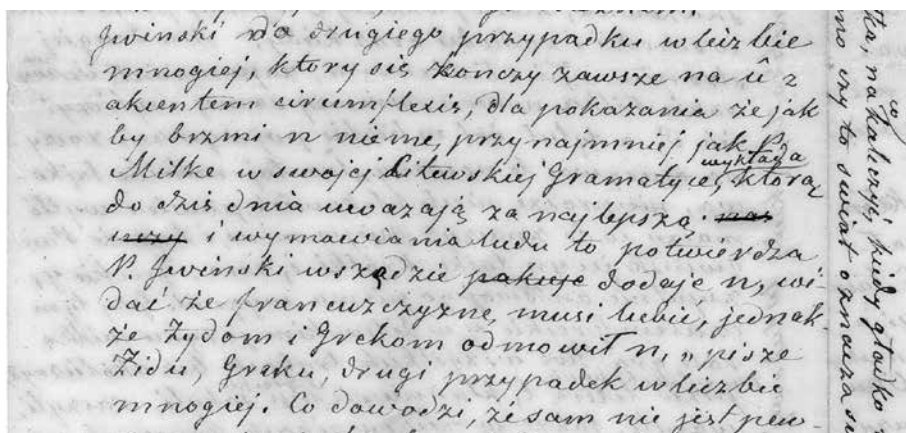 Jwinski do drugiego przypadku w liczbie
mnogiej, ktory się konczy zawsze na û z
akcentem circumflexis, dla pokazania że jak
by brzmi n nieme, przynajmniej jak P.
wykłada
Milke w swojej Litewskiej Gramatyce, którą
do dziś dnia uważają za najlepszą.
i wymawiania ludu to potwierdza
P. Jwinski wszędzie pakuje dodaje n, wi-
dać że francuzczyznę, musi lubić, jednak-
że Żydom i Grekom odmowił n, „pisze
Zidu, Graku, drugi przypadek w liczbie
mnogiej. Co dowodzi, że sam nie jest pew-
tka, na kalczyć, kiedy gładko
w
no czy to swiat oznacza